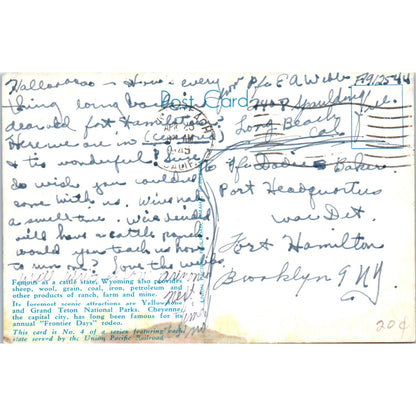 Hallooooo - How's every
thing going back in
dear old Fort Hamilton?
Here we are in Cheyenne
& tis wonderful! Sure
do wish you could
come with us. We've had
a swell time. We've decided
will have a cattle ranch.
would you teach us how
to run one? Love the Webbs
Post Card
from Pfc E A Webb
2408 Spaulding
Long Beach
Cal
APR 25
CALIF.
to Pfc Sadie Baker
Port Headquarters
wac Det.
Fort Hamilton
Brooklyn 9 NY
20¢
Famous as a cattle state, Wyoming also provides
sheep, wool, grain, coal, iron, petroleum and
other products of ranch, farm and mine.
Its foremost scenic attractions are Yellowstone
and Grand Teton National Parks. Cheyenne,
the capital city, has long been famous for its
annual "Frontier Days" rodeo.
This card is No. 4 of a series featuring each
state served by the Union Pacific Railroad.